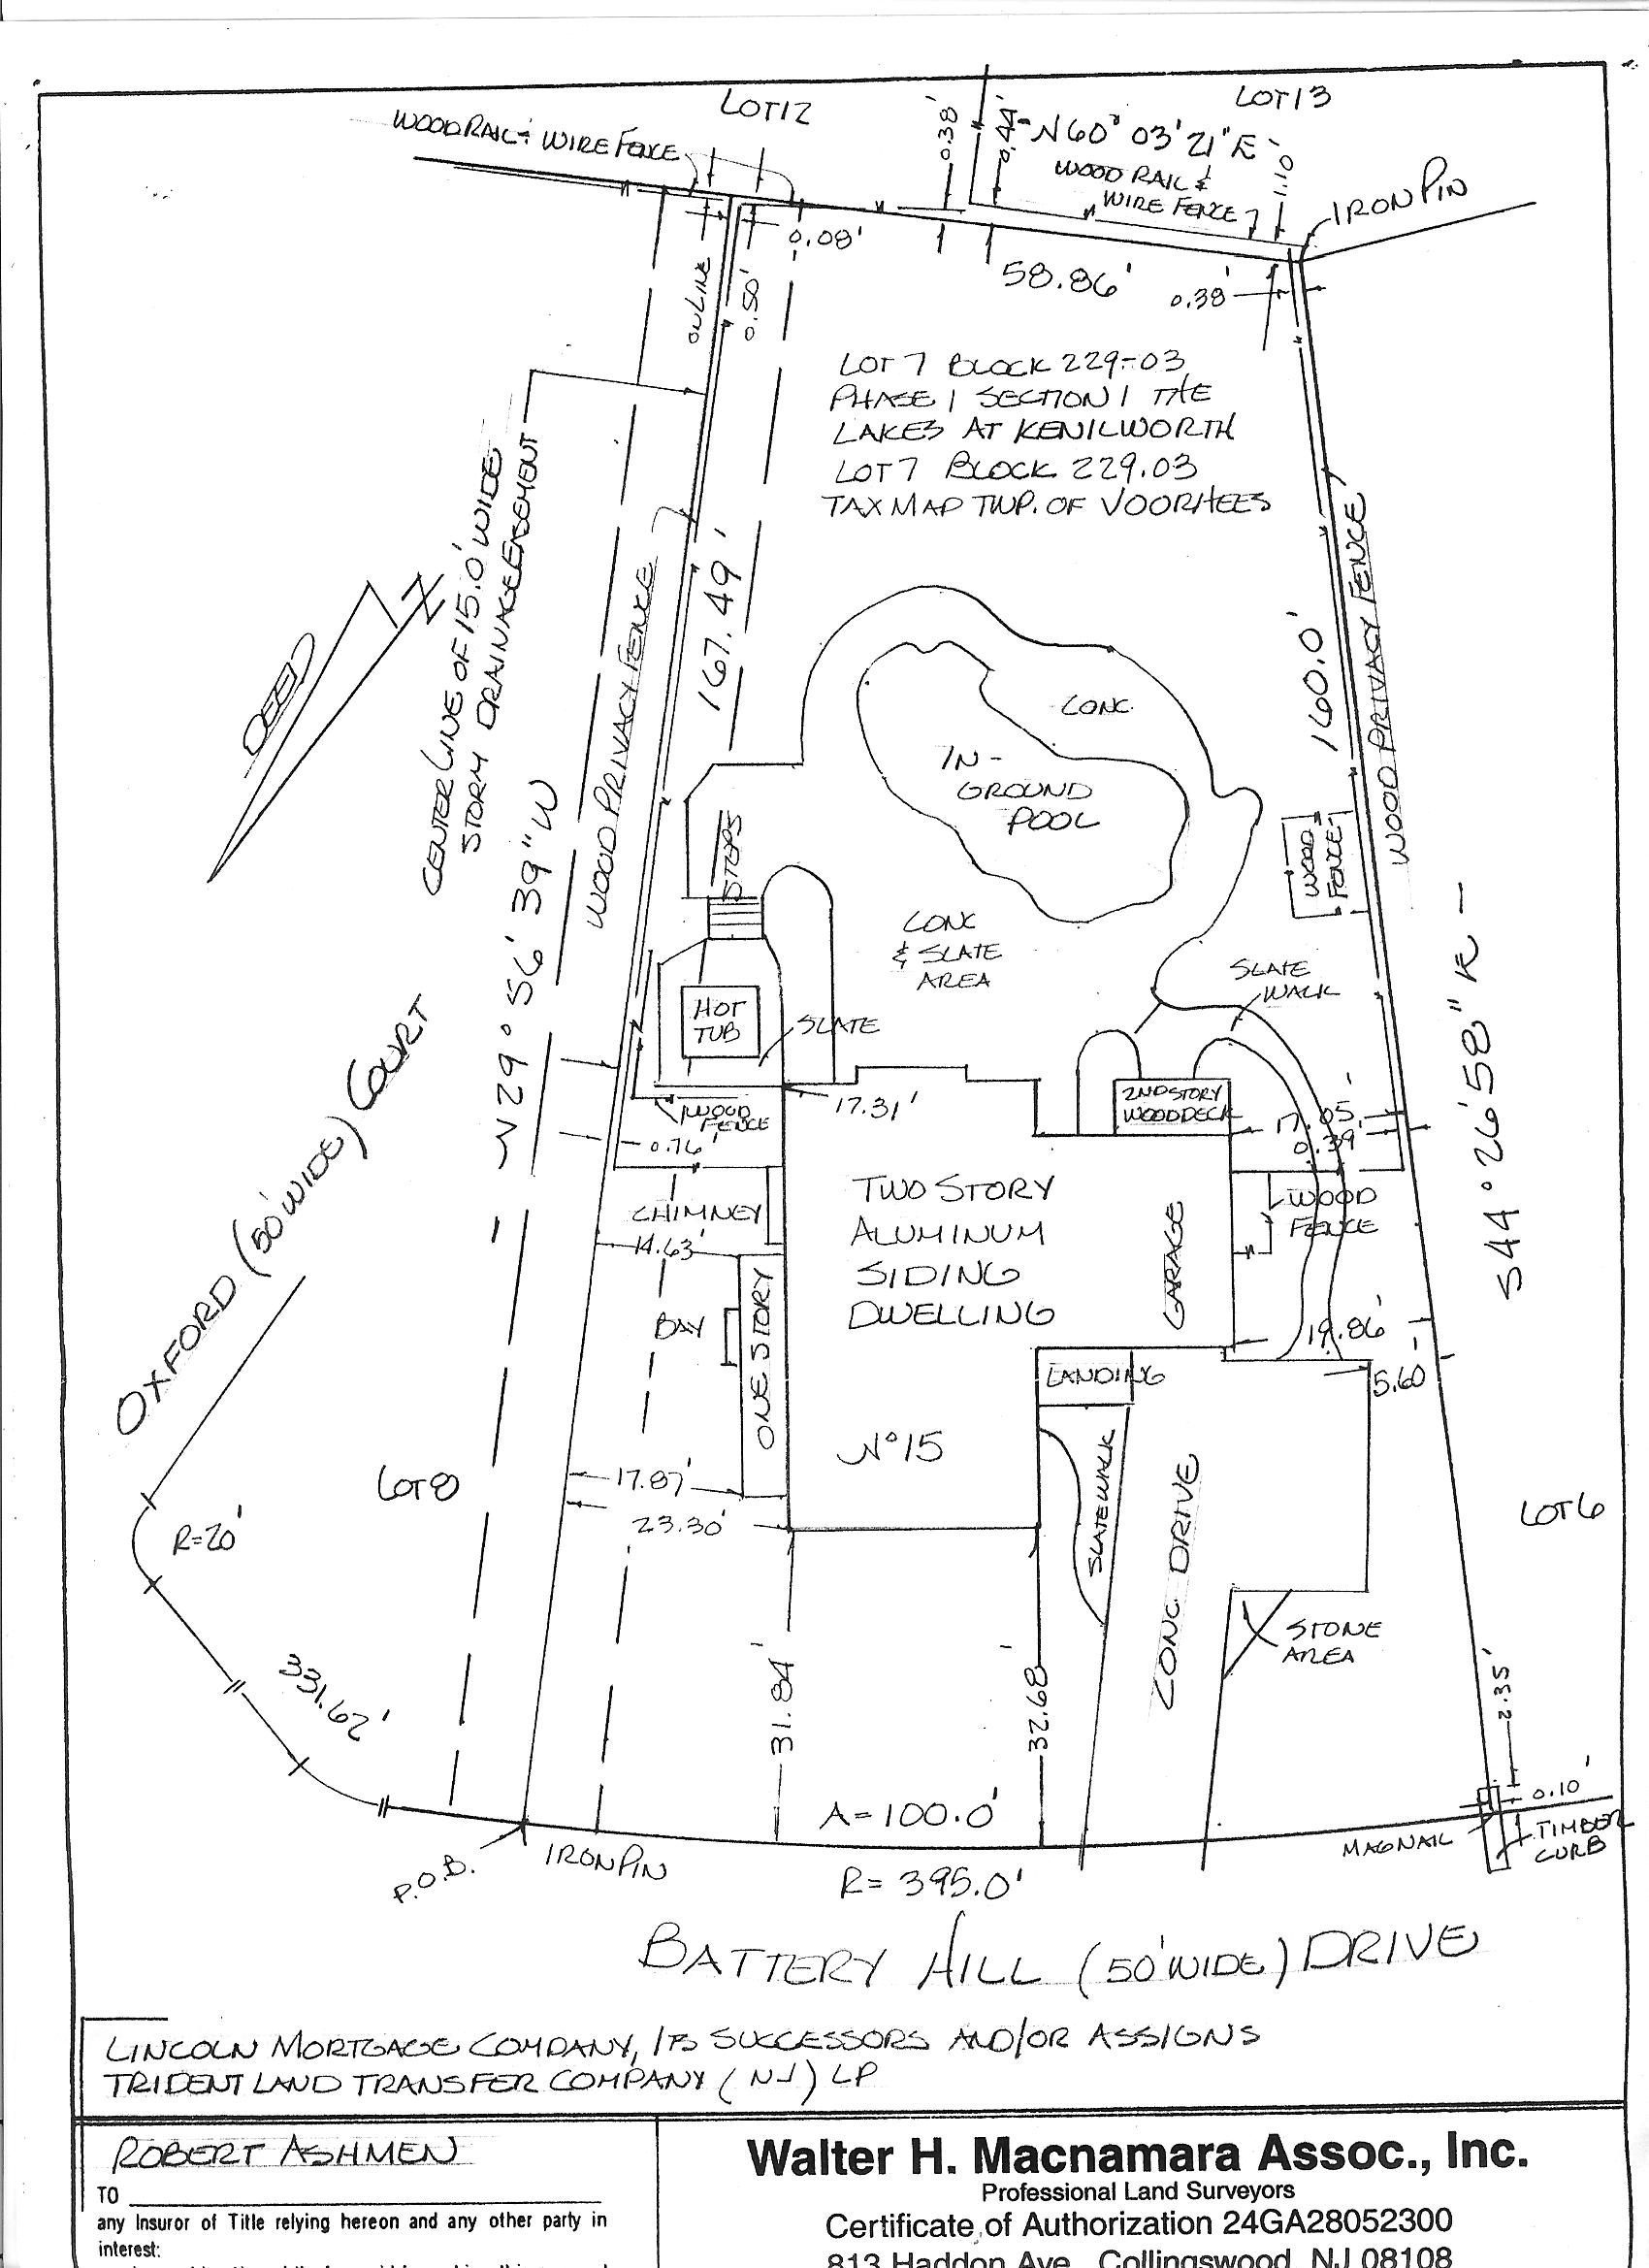 LOT 12
LOT 13
WOOD RAIL & WIRE FENCE
0.38'
0.44'
N 60° 03' 21" E
1.10
WOOD RAIL &
WIRE FENCE
IRON PIN
0.08'
ON LINE
0.50'
58.86'
0.38'
LOT 7 BLOCK 229-03
PHASE 1 SECTION 1 THE
LAKES AT KENILWORTH
LOT 7 BLOCK 229.03
TAX MAP TWP. OF VOORHEES
CENTER LINE OF 15.0' WIDE
STORM DRAINAGE EASEMENT
DEED
N
WOOD PRIVACY FENCE
167.49'
160.0'
WOOD PRIVACY FENCE
CONC.
IN-
GROUND
POOL
STEPS
WOOD
FENCE
CONC
& SLATE
AREA
SLATE
WALK
HOT
TUB
SLATE
N 29° 56' 39" W
S 44° 26' 58" E
OXFORD (50' WIDE) COURT
WOOD
FENCE
17.31'
2ND STORY
WOOD DECK
17.05'
0.39'
0.76'
CHIMNEY
14.63'
TWO STORY
ALUMINUM
SIDING
DWELLING
GARAGE
WOOD
FENCE
BAY
ONE STORY
19.86'
LANDING
5.60
No 15
SLATE WALK
CONC. DRIVE
LOT 8
17.87'
23.30'
LOT 6
R=20'
STONE
AREA
331.62'
31.84'
32.68'
2.35'
A=100.0'
0.10'
TIMBER
CURB
MAGNAIL
P.O.B.
IRON PIN
R= 395.0'
BATTERY HILL (50' WIDE) DRIVE
LINCOLN MORTGAGE COMPANY, ITS SUCCESSORS AND/OR ASSIGNS
TRIDENT LAND TRANSFER COMPANY (NJ) LP
ROBERT ASHMEN
TO
any Insuror of Title relying hereon and any other party in
interest:
Walter H. Macnamara Assoc., Inc.
Professional Land Surveyors
Certificate of Authorization 24GA28052300
813 Haddon Ave., Collingswood, NJ 08108